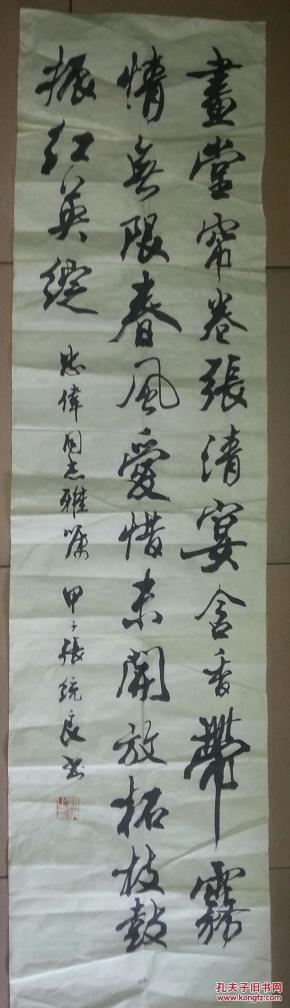 畫堂帘卷張清宴含香帶霧
情無限春風愛惜未開放柘枝鼓
振紅英綻
忠偉同志雅嘱 甲子張統良書
孔夫子旧书网